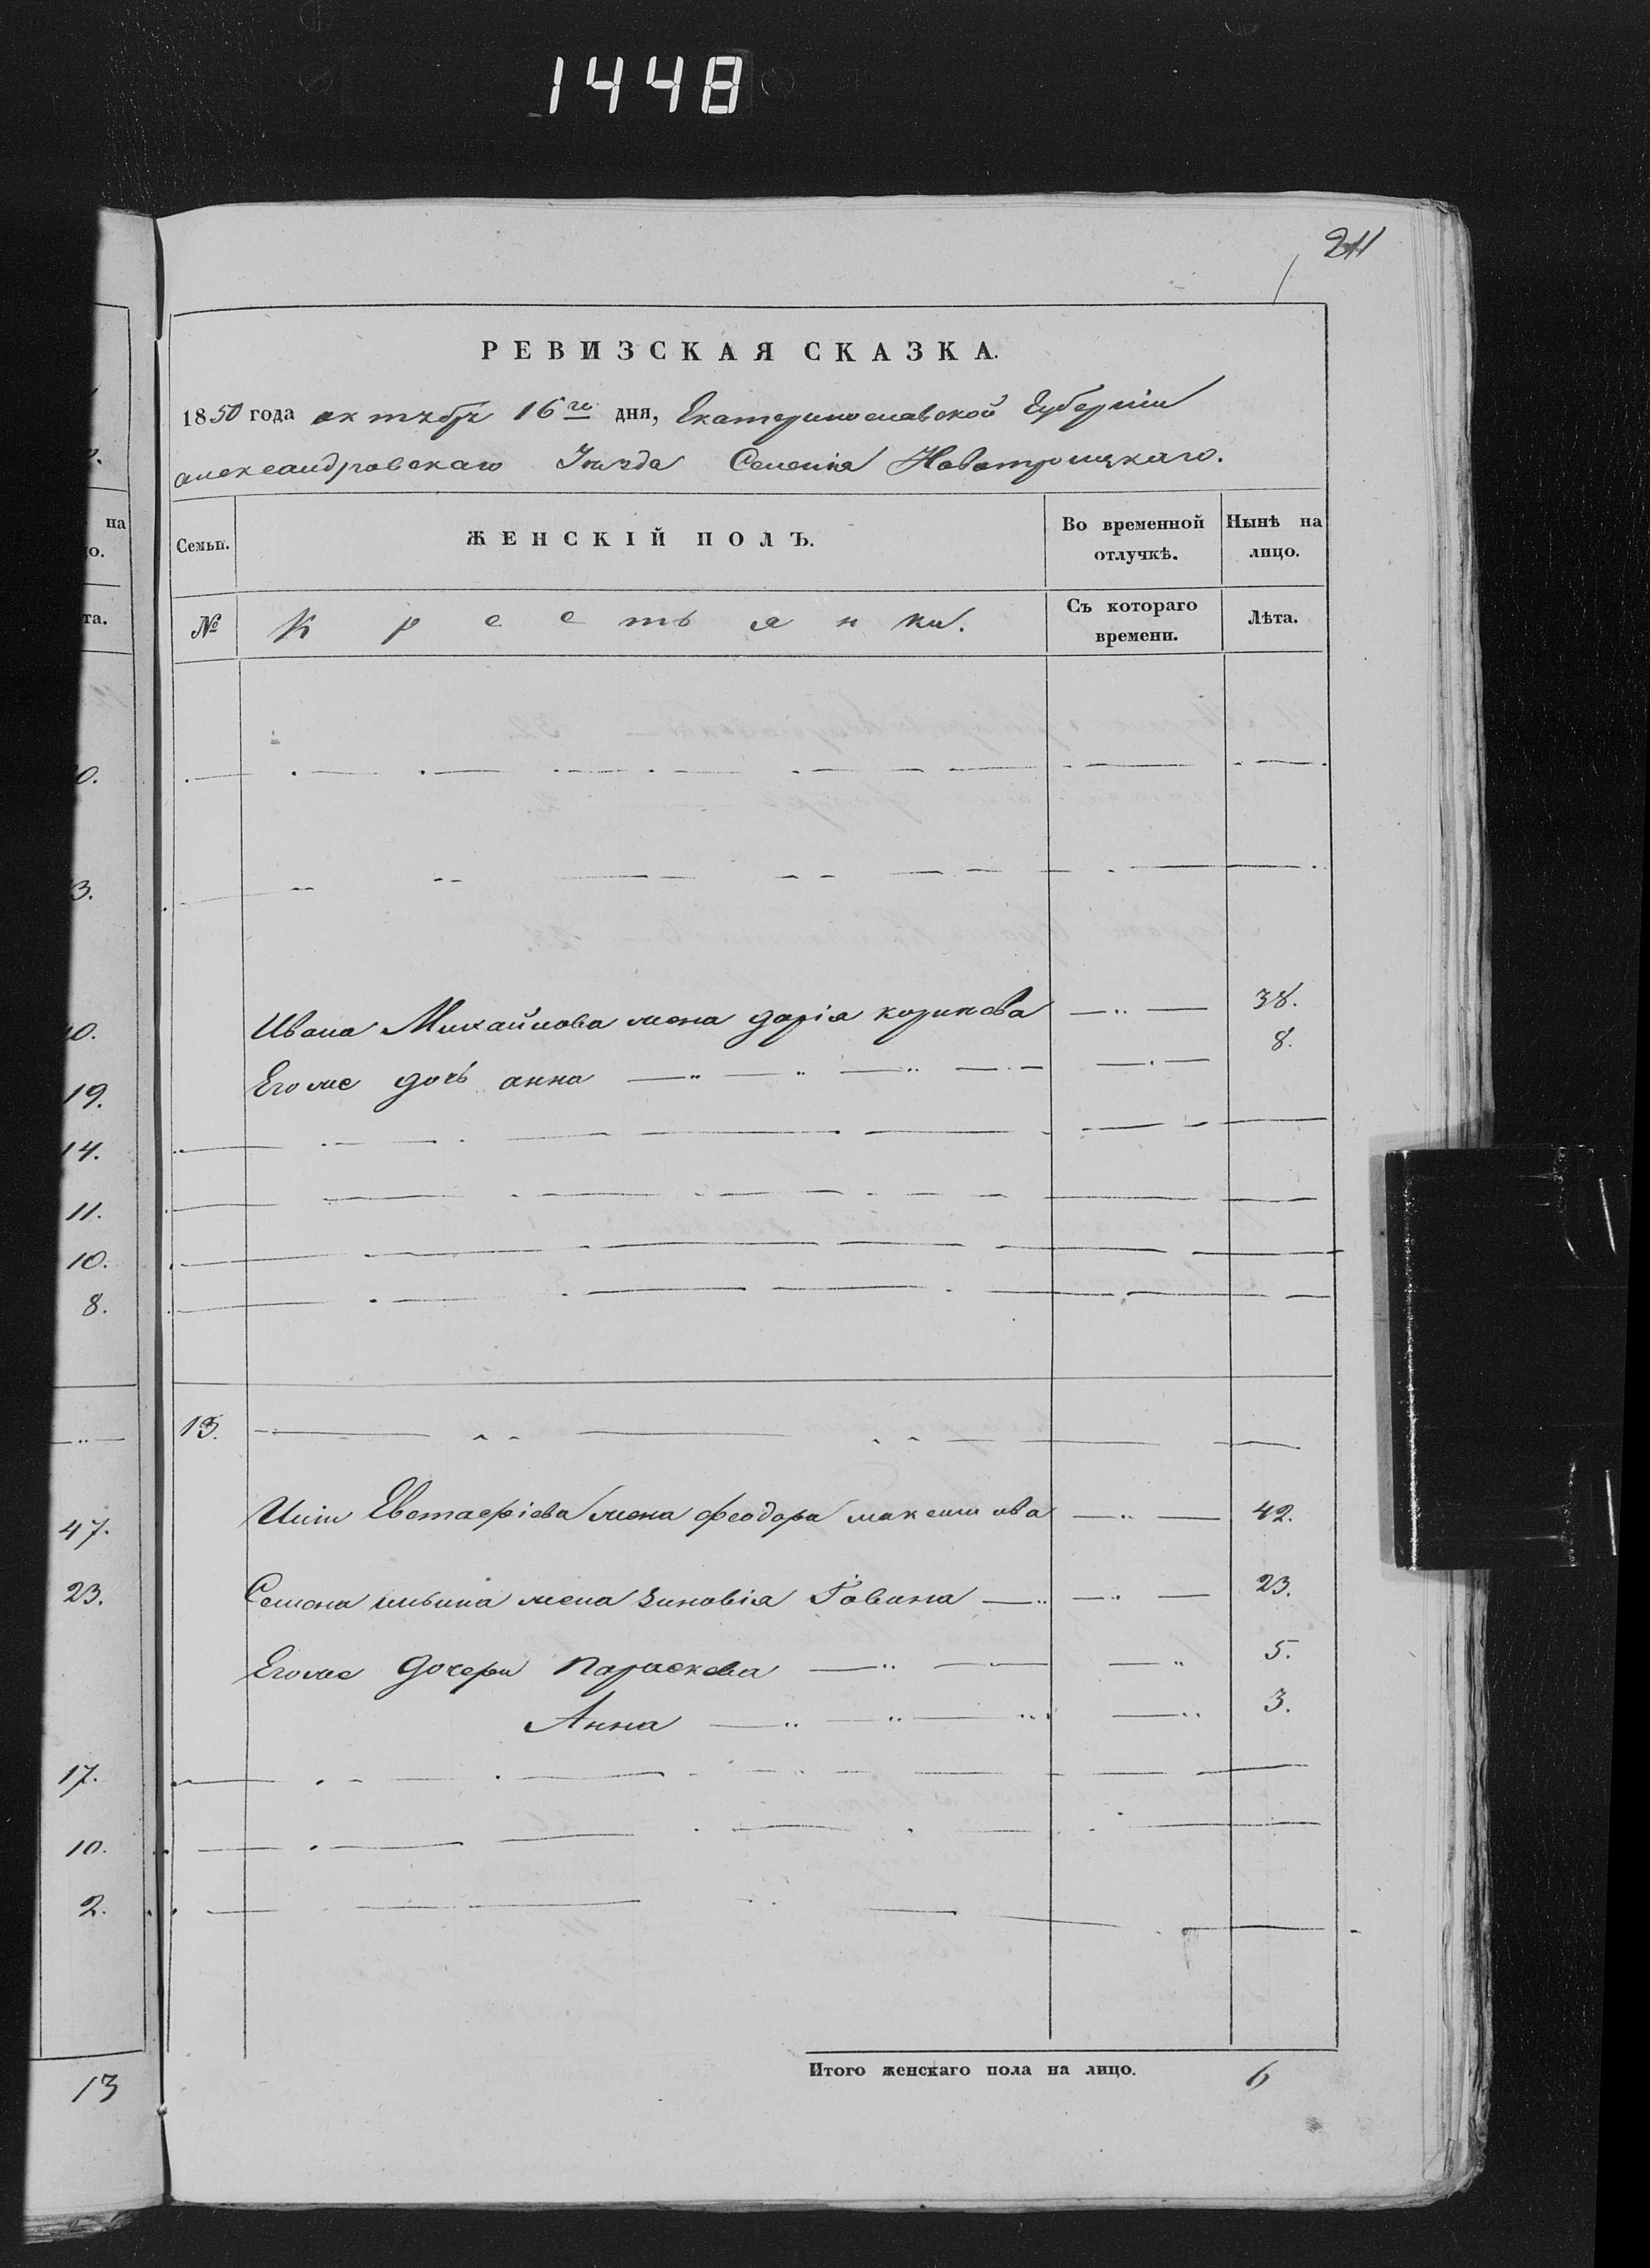 1448
211
РЕВИЗСКАЯ СКАЗКА.
1850 года октябр 16го дня, Екатеринославской Губерніи
александровскаго Уѣзда Селенія Новотроицкаго.
на
о.
Семьи.
ЖЕНСКІЙ ПОЛЪ.
Во временной отлучкѣ.
Нынѣ на лицо.
та.
№
Крестьянки.
Съ котораго времени.
Лѣта.
0.
3.
Ивана Михайлова жена дарія
38.
0.
Его же дочь анна
8.
19.
14.
11.
10.
8.
13.
Евстафіева жена феодора максимова
42.
47.
Семена ильина жена зиновія
23.
23.
Его же дочери Параскева
5.
Анна
3.
17.
10.
2.
Итого женскаго пола на лицо.
6
13